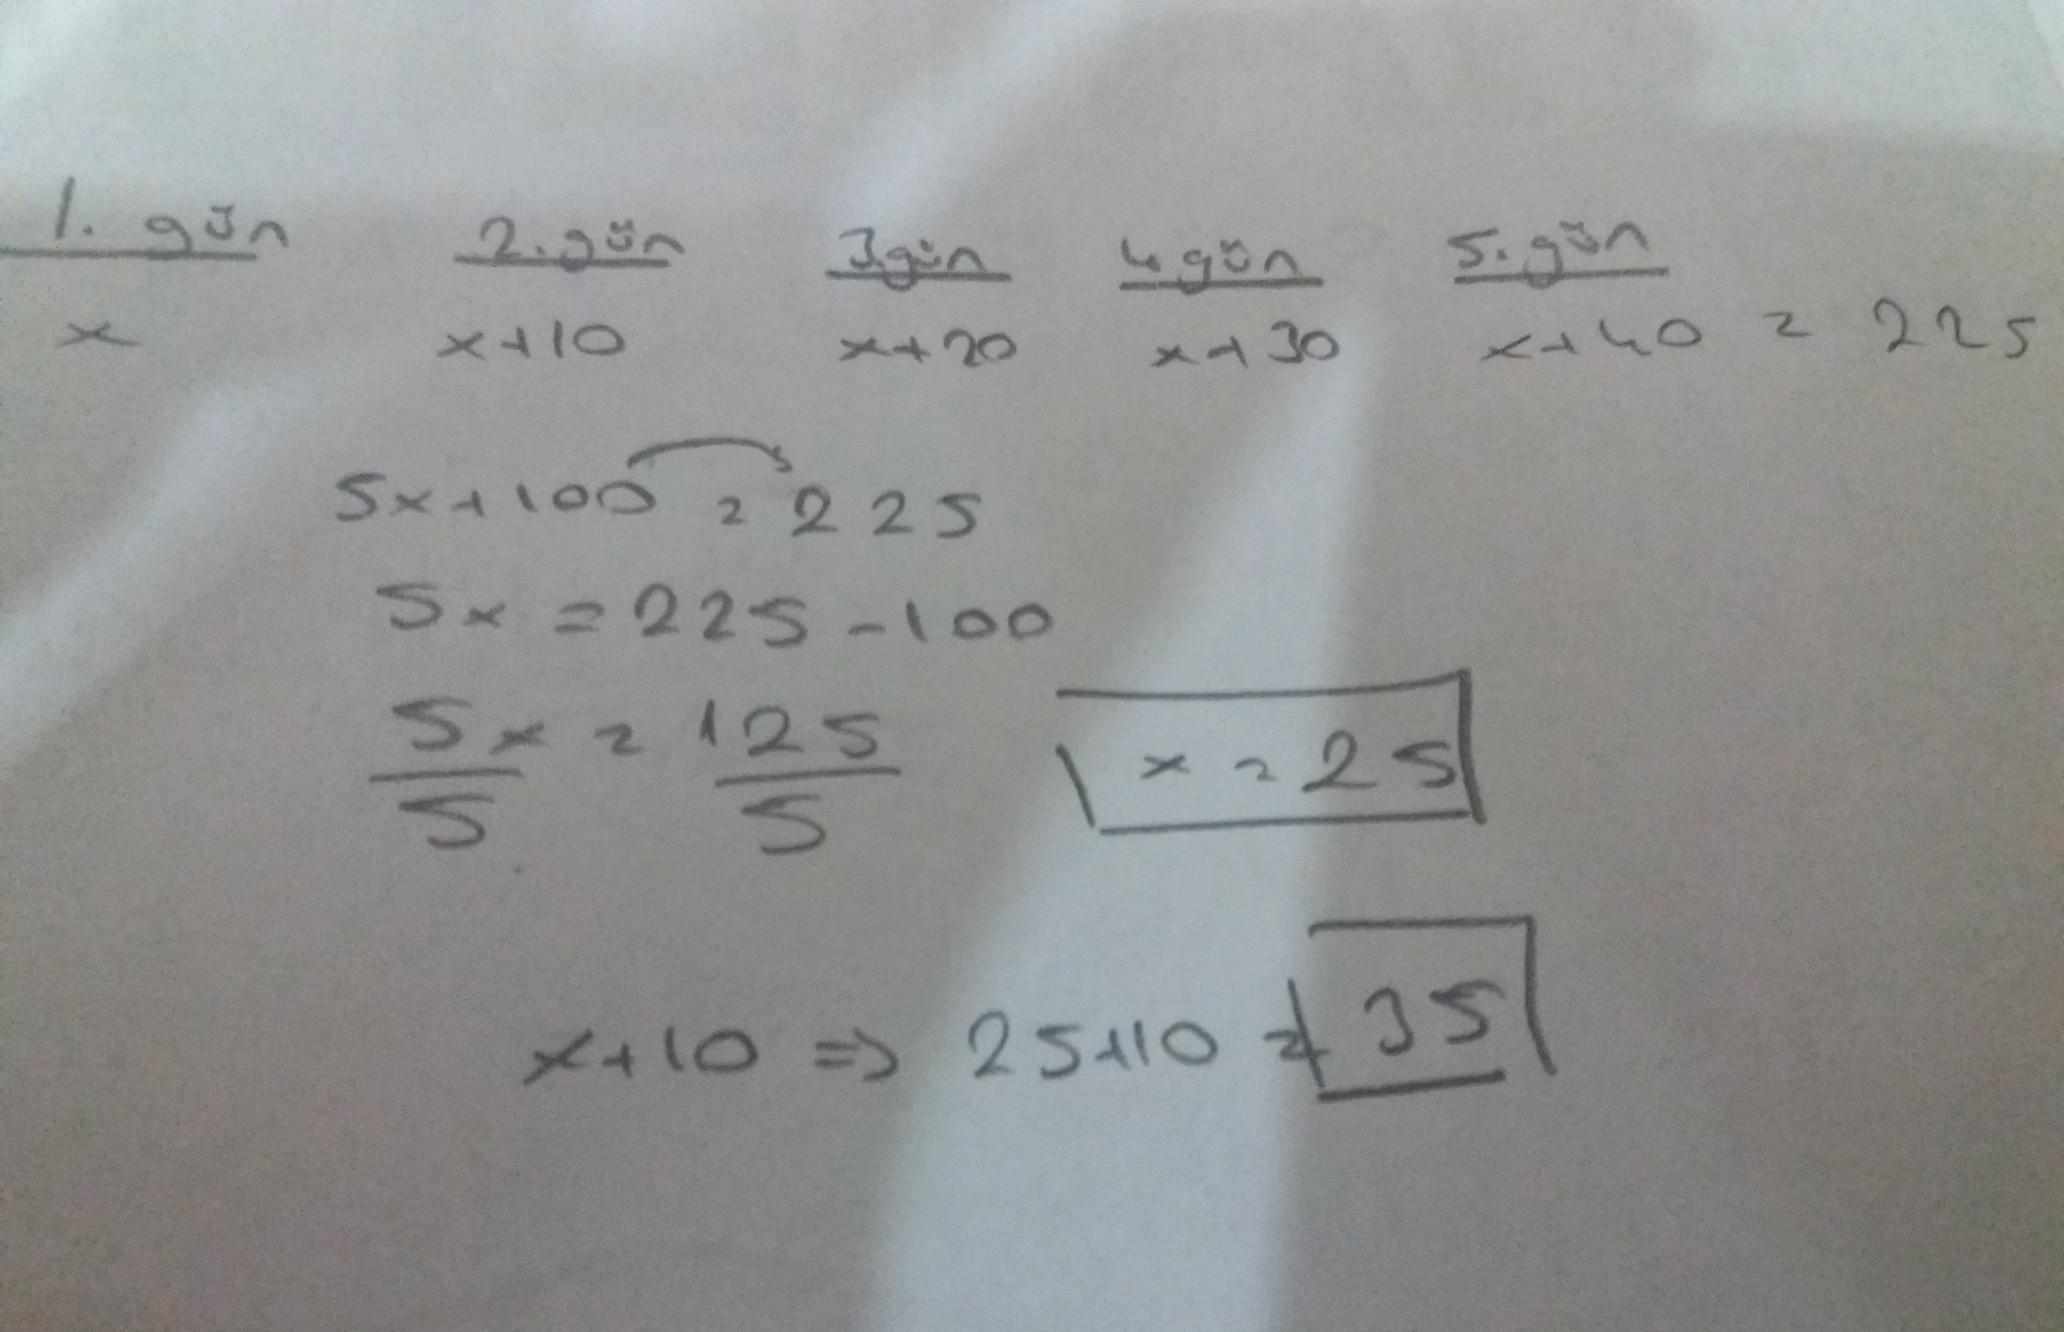 1. gün 2. gün 3.gün 4 gün 5. gün
x x+10 x+20 x+30 x+40 = 225
5x+100 = 225
5x = 225 - 100
5x/5 = 125/5 x = 25
x+10 => 25+10 = 35